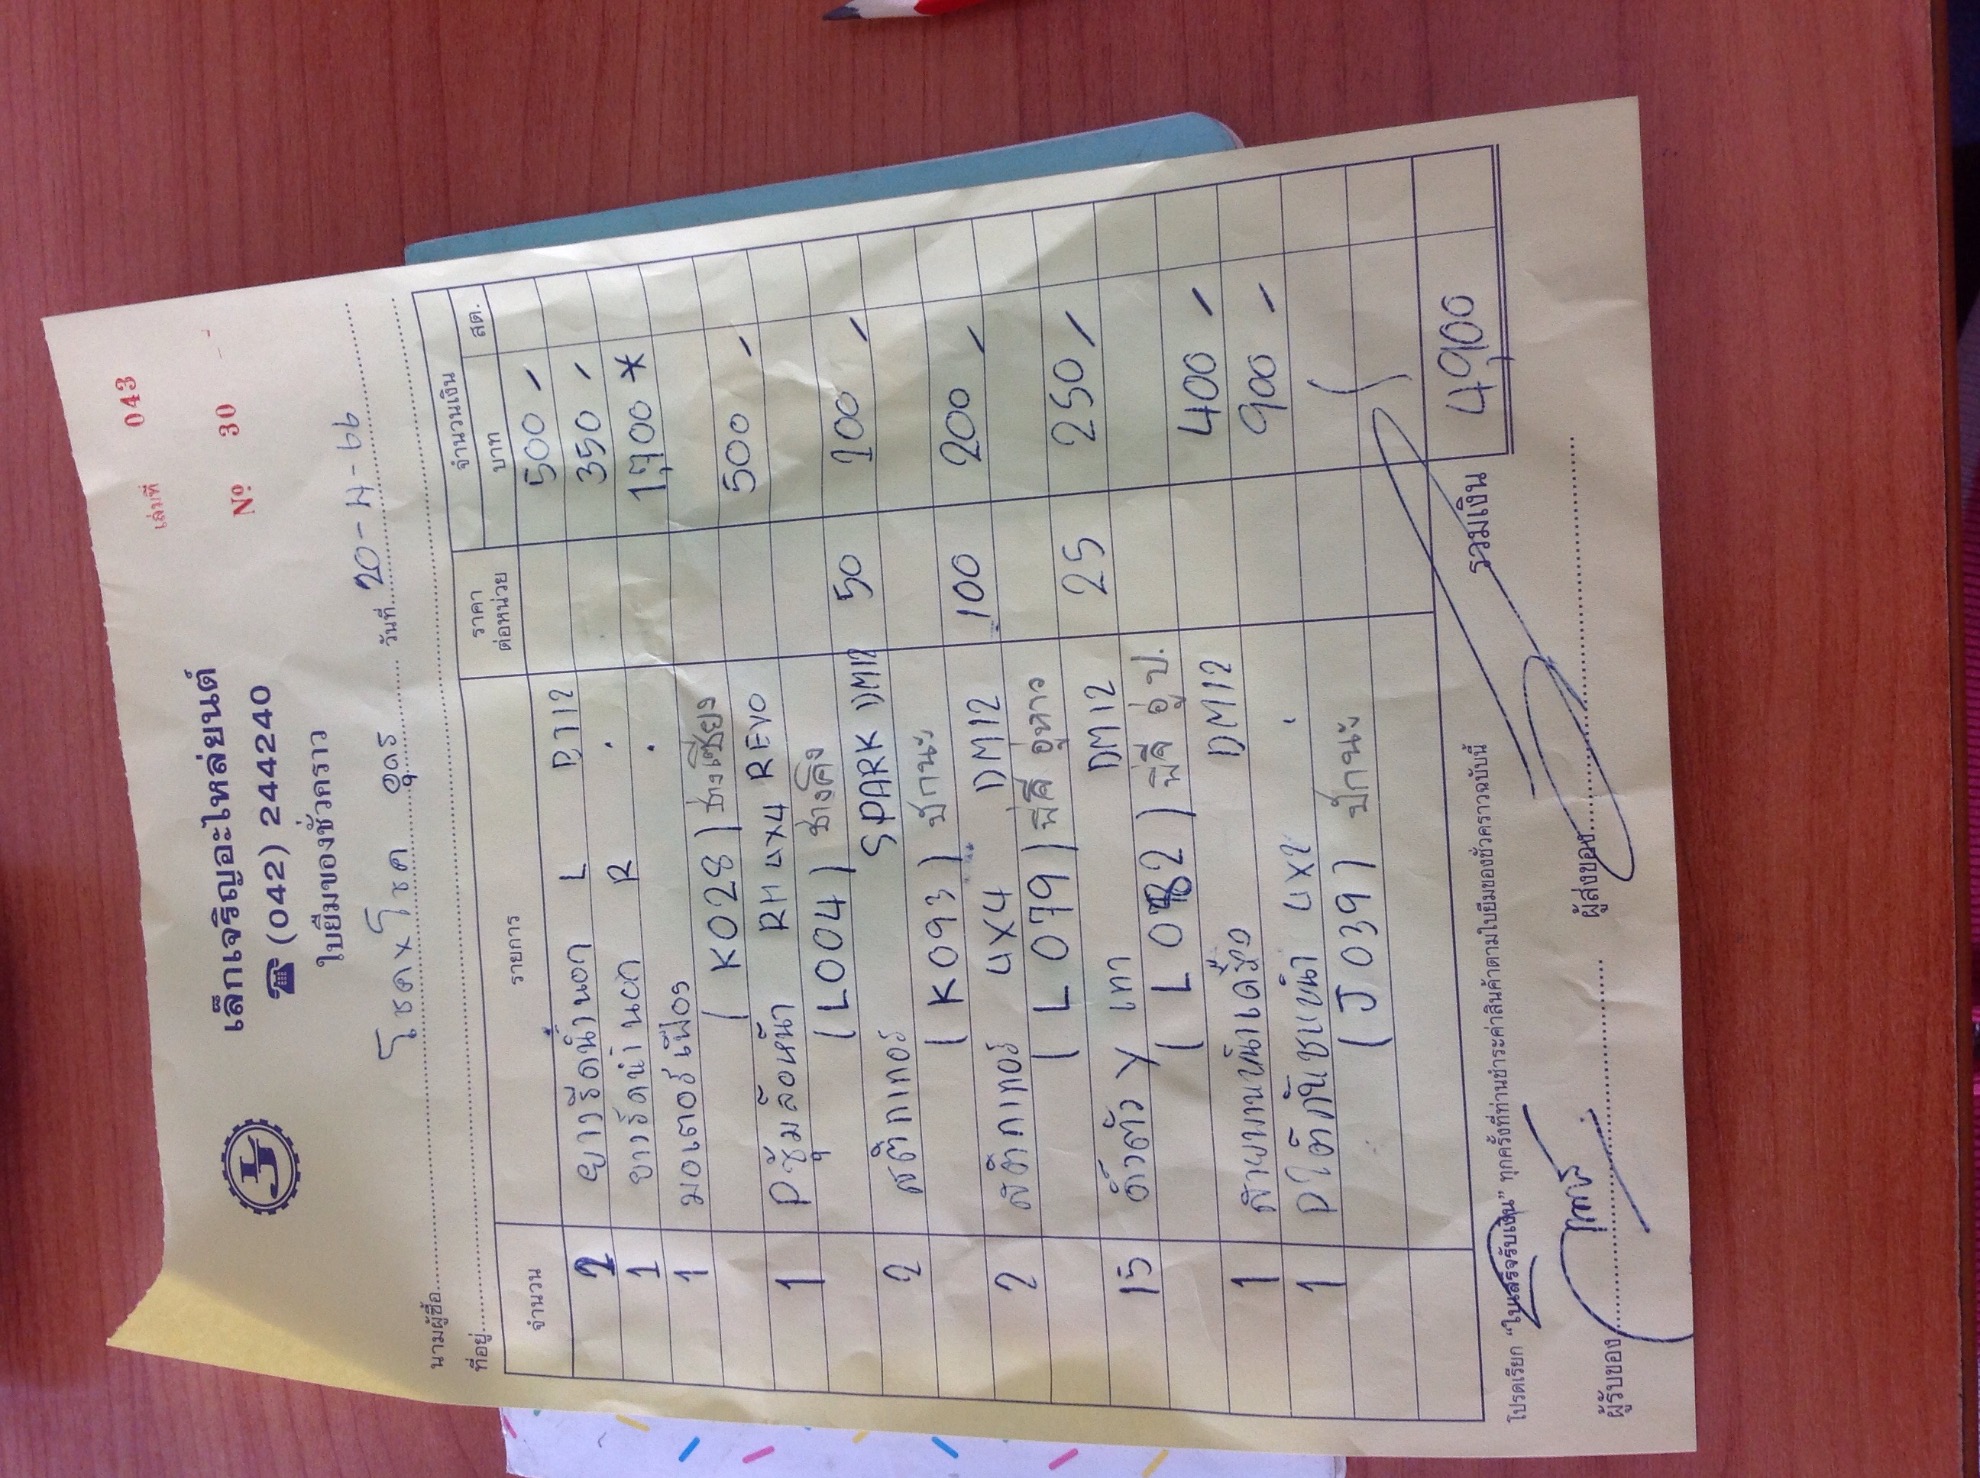 เล่มที่ 043
เล็กเจริญอะไหล่ยนต์
☎ (042) 244240
Nº 30
ใบยืมของชั่วคราว
นามผู้ซื้อ โชคxโชค อุดร วันที่ 20-4-66
ที่อยู่
จำนวน รายการ ราคาต่อหน่วย จำนวนเงิน
บาท สต.
2 ยางรีดน้ำนอก L 500 -
1 ยางรีดน้ำนอก R 350 -
1 มอเตอร์เฟือง 1,700 *
(K028) ช่างเชียง
1 Pซุ้มล้อหน้า RH 4x4 REVO 500 -
(L004) ช่างโค้ง
2 สติกเกอร์ SPARK DM12 50 100 -
(K093) ปกนะ
2 สติกเกอร์ 4x4 DM12 100 200 -
(L079) พี่สี อู่หาว
15 Y เทา DM12 25 250 -
(L082) พี่จี อู่ ป.
1 DM12 400 -
1 Pใต้กันชนหน้า 4x2 900 -
(J039) ปกนะ
รวมเงิน 4,900
โปรดเรียก "ใบเสร็จรับเงิน" ทุกครั้งที่ท่านชำระค่าสินค้าตามใบยืมของชั่วคราวฉบับนี้
ผู้รับของ ผู้ส่งของ